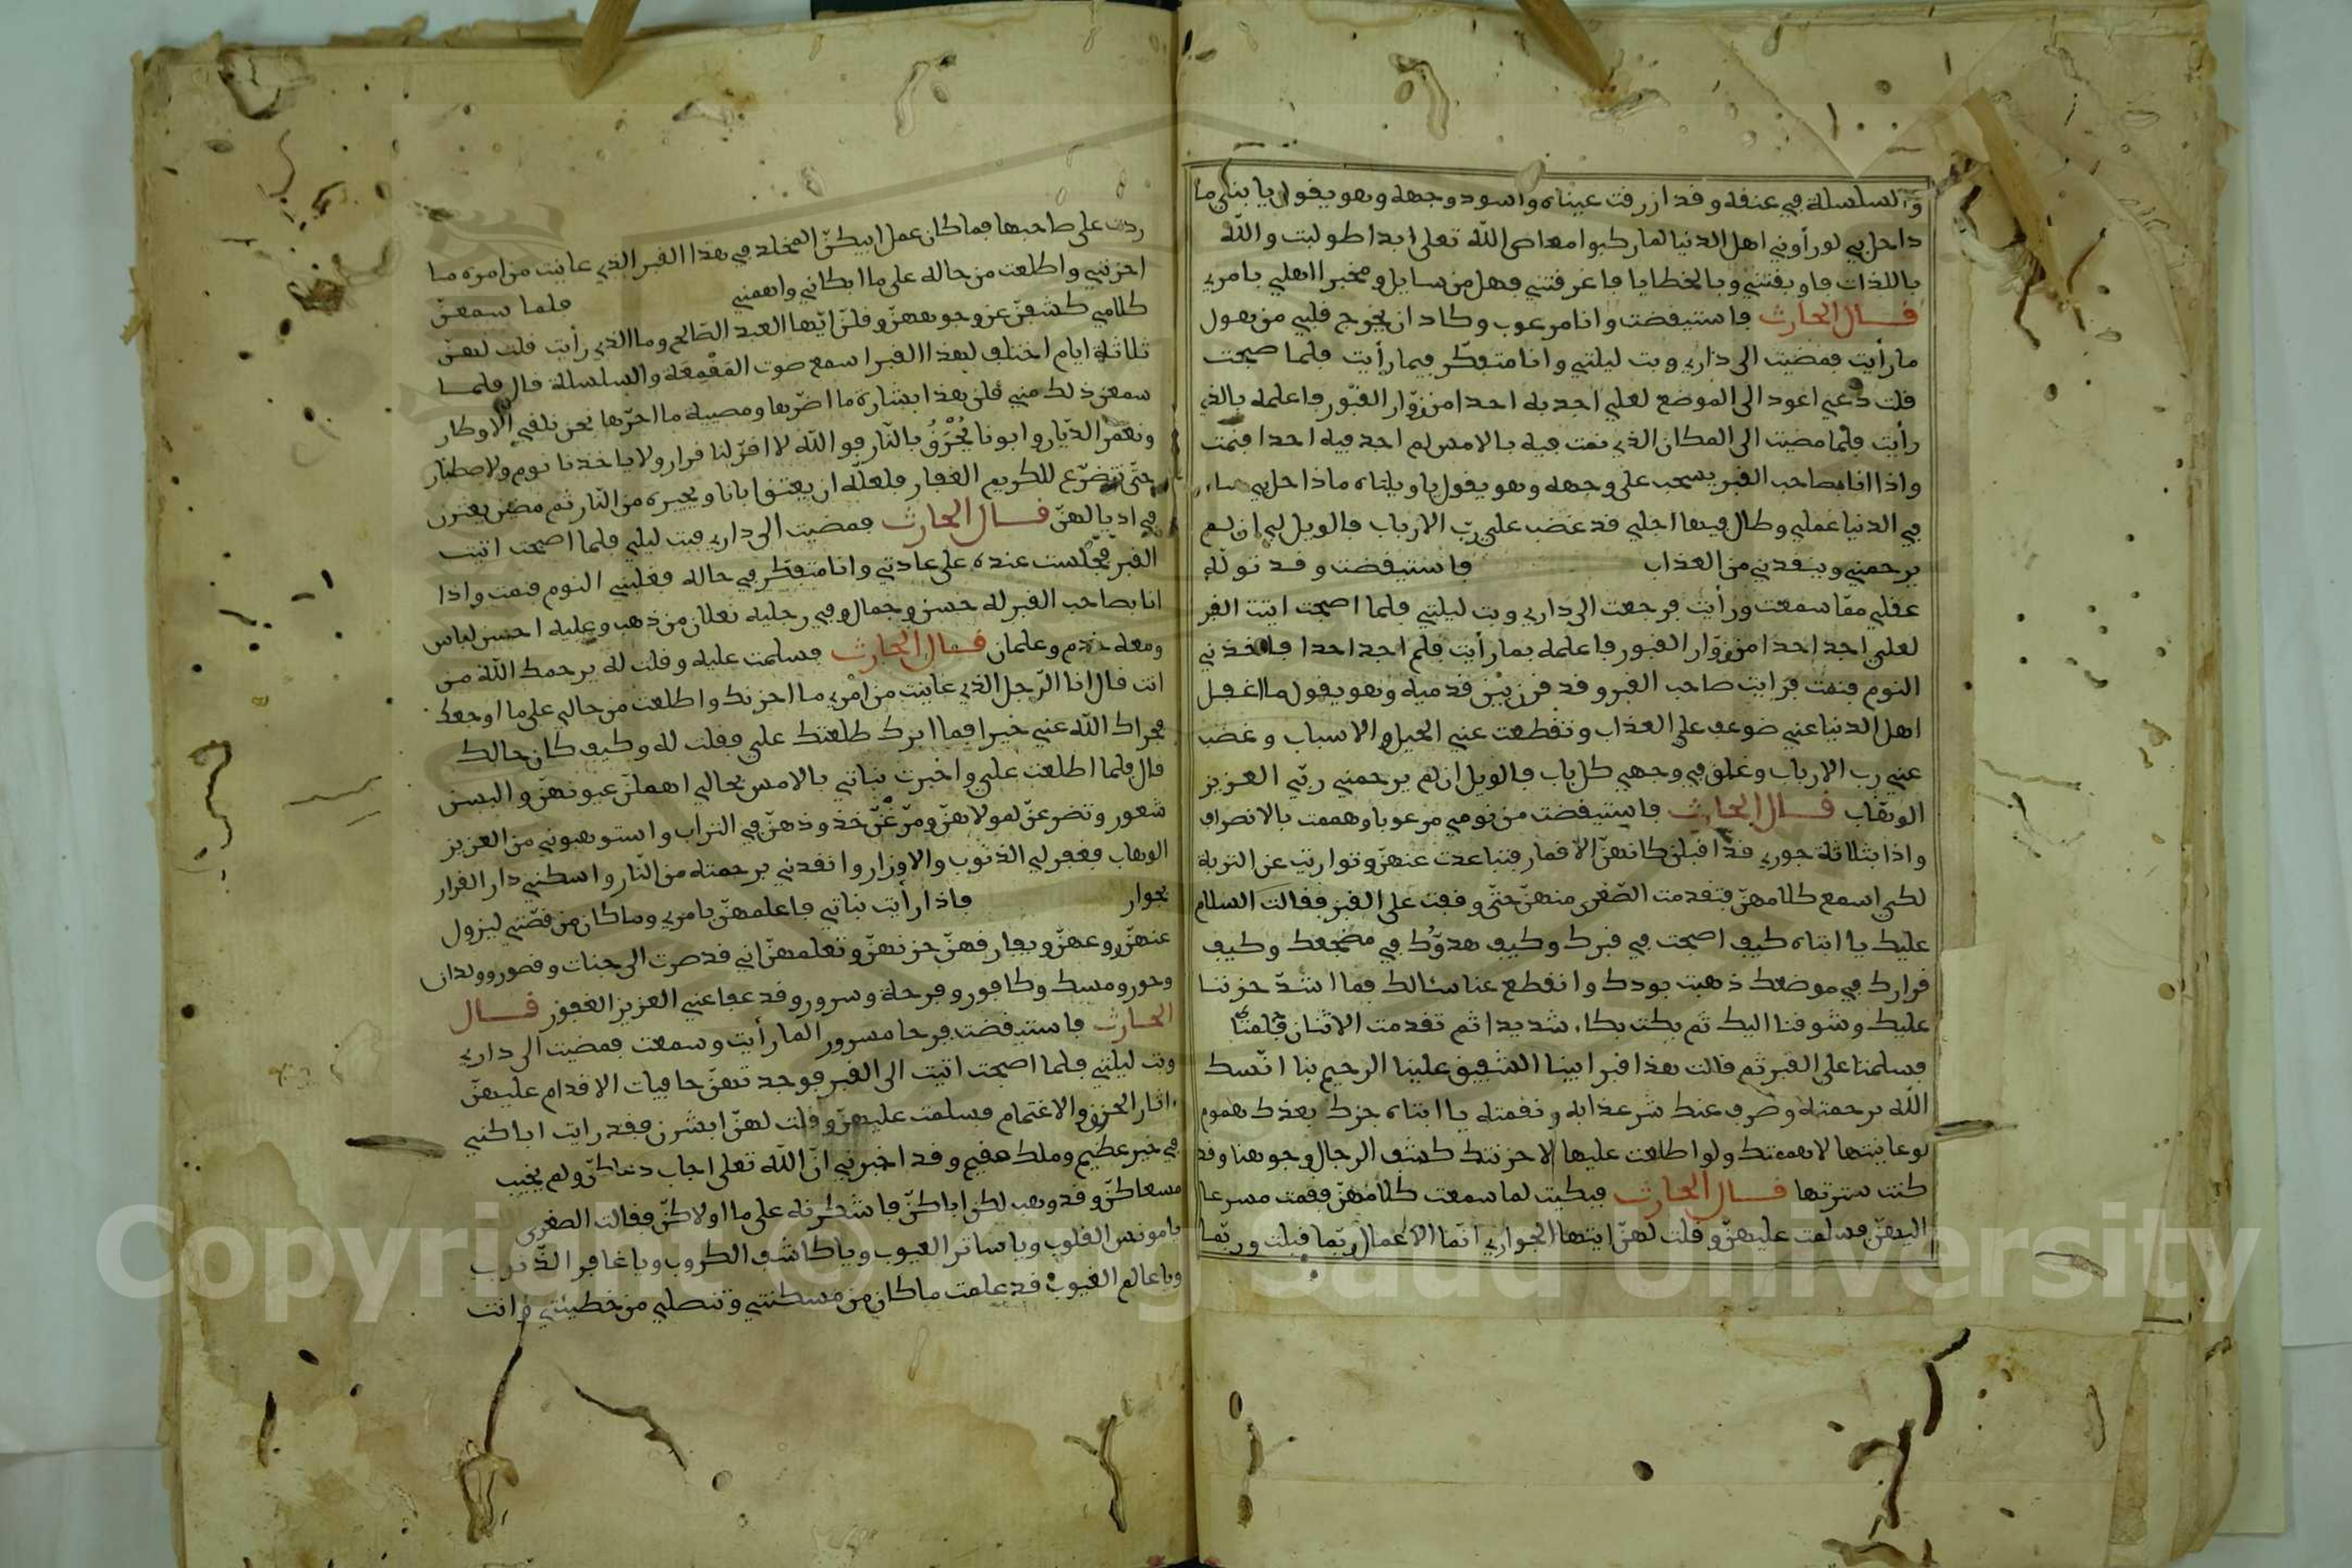 والسلسلة في عنقه وقد ازرقت عيناه واسود وجهه وهو يقول يا بنلى ما
داحل بي لو رأوني اهل الدنيا لما ركبوا معاصى الله تعلى ابدا طولبت والله
باللذات فاوبقتني وبالخطايا فاغرقتني فهل من سايل ومخبر اهلي بامري
قال الحارث فاستيقضت وانا مرعوب وكاد ان يخرج قلبي من هول
ما رأيت فمضيت الى داري وبت ليلتي وانا متفكر فيما رأيت فلما صبحت
قلت دعني اعود الى الموضع لعلي اجد به احدا من زوار القبور فاعلمه بالذي
رأيت فلما مضيت الى المكان الذي نمت فيه بالامس لم اجد فيه احدا فنمت
واذا انا بصاحب القبر يسحب على وجهه وهو يقول يا ويلتاه ماذا حل بي ساء
في الدنيا عملي وطال فيها اجلي قد غضب علي رب الارباب فالويل لي ان لم
يرحمني وينقدني من العذاب فاستيقضت وقد توله
عقلي مما سمعت ورأيت فرجعت الى داري وبت ليلتي فلما اصبحت اتيت القبر
لعلي اجد احدا من زوار القبور فاعلمه بما رأيت فلم اجد احدا فاخذني
النوم فنمت فرايت صاحب القبر وقد قرن بين قدميه وهو يقول ما اغفل
اهل الدنيا عني ضوعف علي العذاب وتقطعت عني الحيل والاسباب وغضب
عني رب الارباب وغلق في وجهي كل باب فالويل ان لم يرحمني ربي العزيز
الوهاب قال الحارث فاستيقضت من نومي مرعوبا وهممت بالانصراف
واذا بثلاثة جوري قد اقبلن كانهن الاقمار فتباعدت عنهن وتواريت عن التربة
لكي اسمع كلامهن فتقدمت الصغرى منهن حتى وقفت على القبر فقالت السلام
عليك يا ابتاه كيف اصبحت في قبرك وكيف هدوك في مضجعك وكيف
قرارك في موضعك ذهبت بودك وانقطع عنا سئالك فما اشد حزننا
عليك وشوقنا اليك ثم بكت بكاء شديدا ثم تقدمت الاثنان
فسلمتا على القبر ثم قالت هذا قبر ابينا الشفيق علينا الرحيم بنا انسك
الله برحمته وصرف عنك شر عذابه ونقمته يا ابتاه جرك بعدك هموم
لو عاينتها لاهمتك ولو اطلعت عليها لاحزنتك كشف الرجال وجوهنا وقد
كنت سترتها قال الحارث فبكيت لما سمعت كلامهن فقمت مسرعا
اليهن فسلمت عليهن وقلت لهن ايتها الجواري انما الاعمال ربما قبلت وربما
ردت على صاحبها فما كان عمل ابيكن المخلد في هذا القبر الذي عاينت من امره ما
احزنني واطلعت من حاله على ما ابكاني واهمني فلما سمعن
كلامي كشفن عن وجوههن وقلن ايها العبد الصالح وما الذي رأيت قلت لهن
ثلاثة ايام اختلف لهذا القبر اسمع صوت المقمعة والسلسلة قال فلما
سمعن ذلك مني قلن هذا بشارة ما اضرها ومصيبة ما احرها نحن نلقي الاوطار
ونعمر الديار وابونا يحرق بالنار فو الله لا اقر لنا قرار ولا ياخذنا نوم ولا صطبار
حتى نتضرع للكريم الغفار فلعله ان يعتق ابانا ويجيره من النار ثم مضين يعثرن
في اديالهن قال الحارث فمضيت الى داري فبت ليلي فلما اصبحت اتيت
القبر فجلست عنده على عادتي وانا متفكر في حاله فغلبني النوم فنمت واذا
انا بصاحب القبر له حسن وجمال وفي رجليه نعلان من ذهب وعليه احسن لباس
ومعه خدم وغلمان قال الحارث فسلمت عليه وقلت له يرحمك الله من
انت قال انا الرجل الذي عاينت من امري ما احزنك واطلعت من حالي على ما اوجعك
فجزاك الله عني خيرا فما ابرك طلعتك علي فقلت له وكيف كان حالك
قال فلما اطلعت علي واخبرت بناتي بالامس بحالي اهملن عيونهن والبسن
شعور وتضرعن لمولاهن ومرغن خدودهن في التراب واستوهبوني من العزيز
الوهاب فغفر لي الذنوب والاوزار وانقدني برحمته من النار واسكنني دار القرار
بجوار فاذا رأيت بناتي فاعلمهن بامري وما كان من قصتي ليزول
عنهن روعهن ويفارقهن حزنهن وتعلمهن اني قد صرت الى جنات وقصور وولدان
وحور ومسك وكافور وفرحة وسرور وقد عفا عني العزيز الغفور قال
الحارث فاستيقضت فرحا مسرور لما رأيت وسمعت فمضيت الى داري
وبت ليلتي فلما اصبحت اتيت الى القبر فوجدتهن حافيات الاقدام عليهن
اثار الحزن والاغتمام فسلمت عليهن وقلت لهن ابشرن فقد رايت اباكن
في خير عظيم وملك مقيم وقد اخبرني ان الله تعلى اجاب دعاكن ولم يخيب
مسعاكن وقد وهب لكن اباكن فاشكرنه على ما اولاكن فقالت الصغرى
يا مونس القلوب ويا ساتر العيوب ويا كاشف الكروب ويا غافر الذنوب
ويا عالم الغيوب قد علمت ما كان من مسكنتي وتنصلي من خطيئتي وانت
Copyright © King Saud University